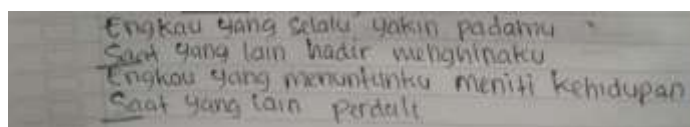 Engkau yang selalu yakin padamu
Saat yang lain hadir menghinaku
Engkau yang menuntunku meniti kehidupan
Saat yang lain perduli